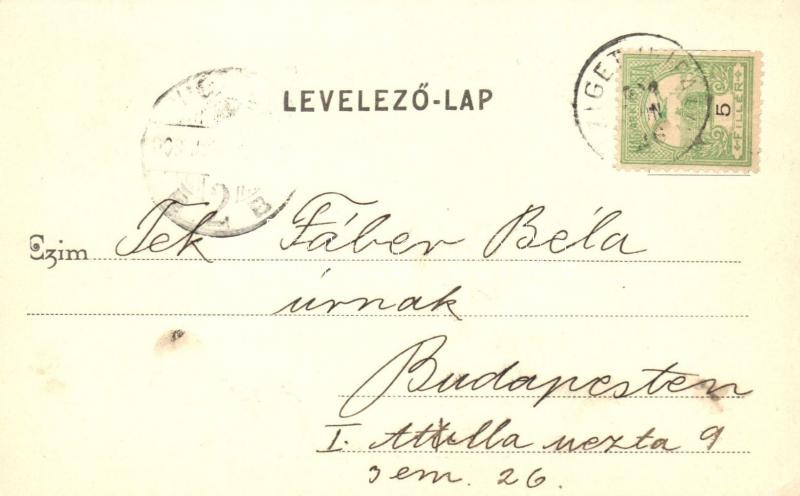 LEVELEZŐ-LAP
5
FILLÉR
Czim Tek Fáber Béla
úrnak
Budapesten
I. Attilla uczta 9
3 em. 26.